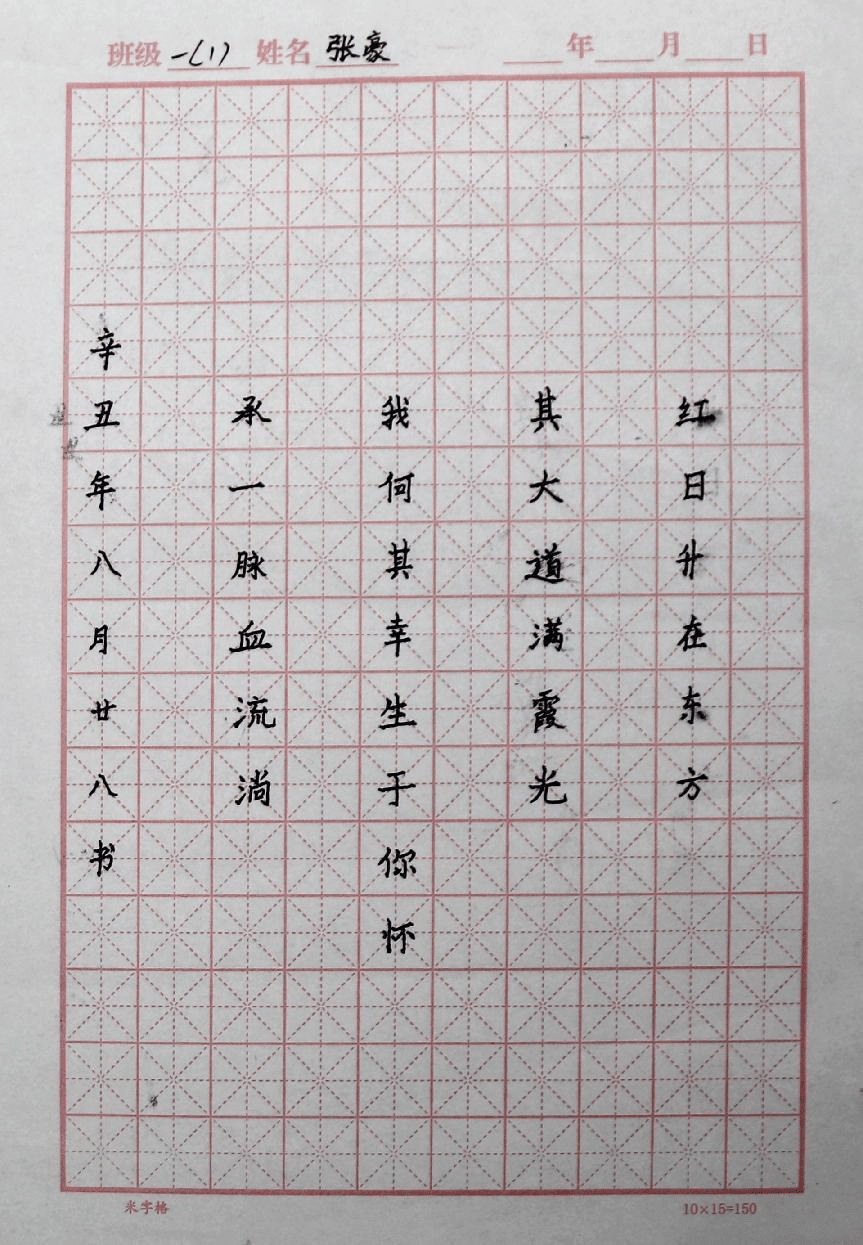 班级 一(1) 姓名 张豪 ____年____月____日
红日升在东方
其大道满霞光
我何其幸生于你怀
承一脉血流淌
辛丑年八月廿八书
米字格 10×15=150